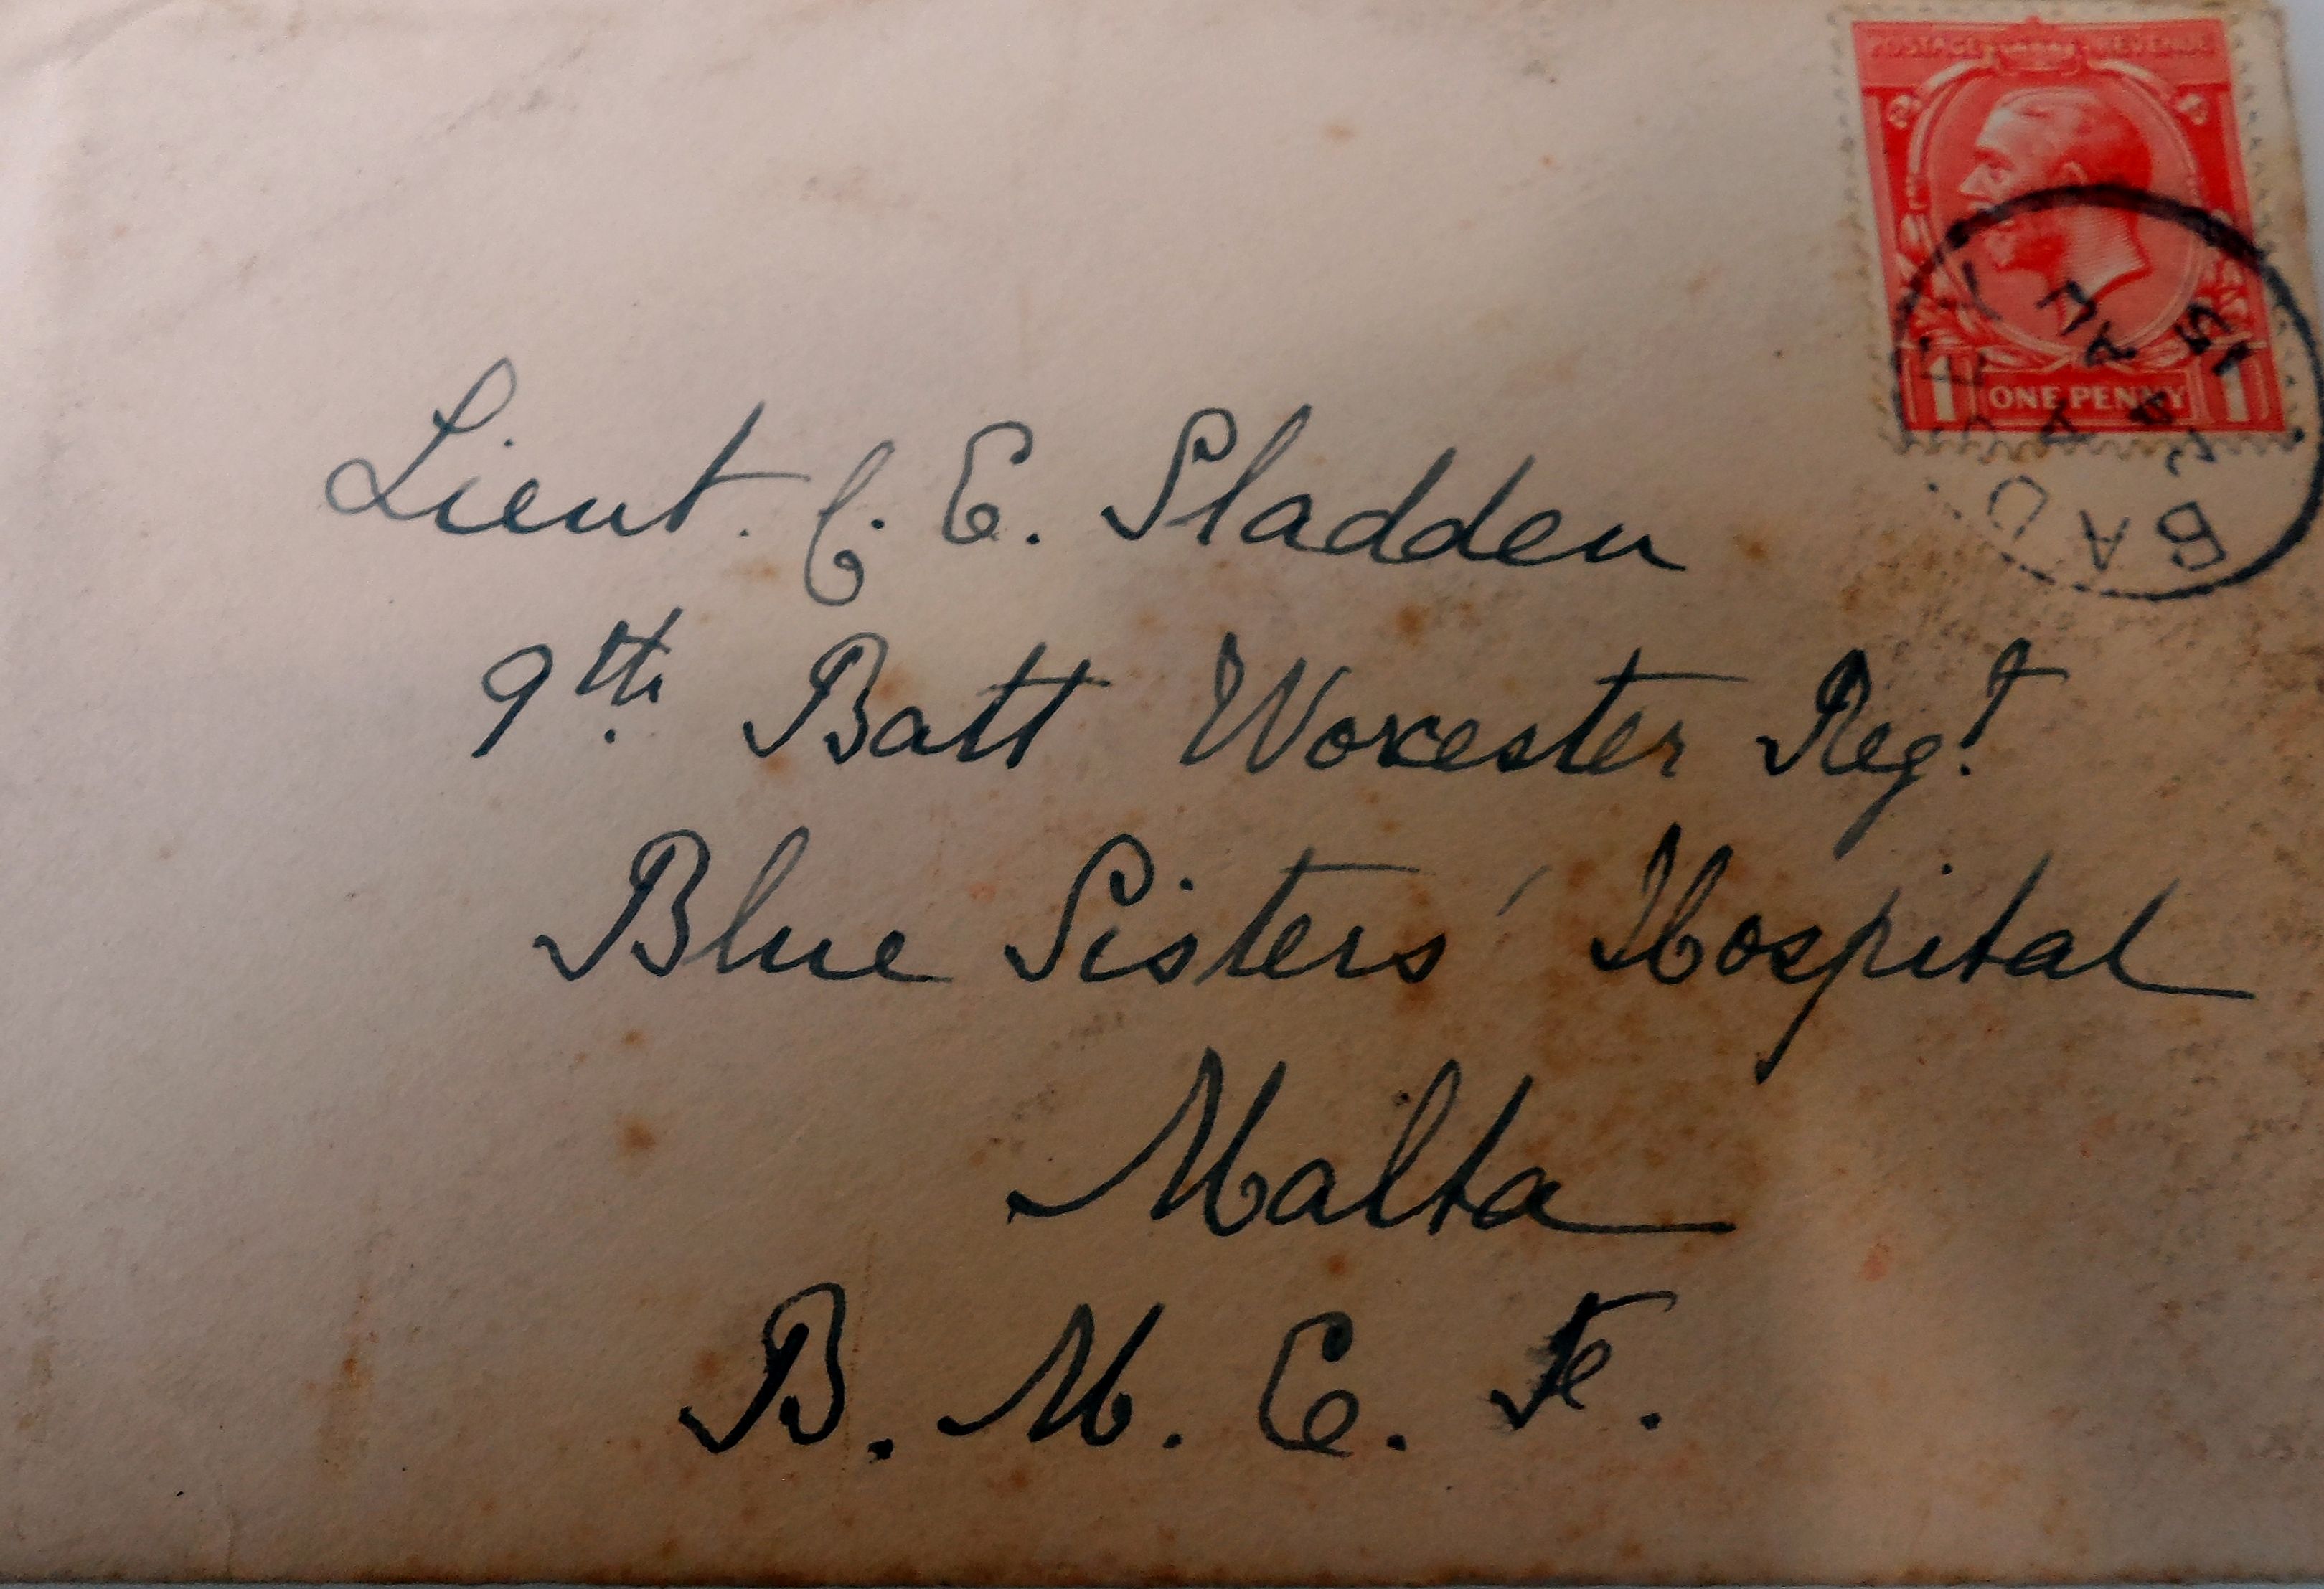 POSTAGE REVENUE
1 ONE PENNY 1
BAD
15
Lieut. C. E. Sladden
9th. Batt Worcester Regt.
Blue Sisters' Hospital
Malta
B. M. E. F.